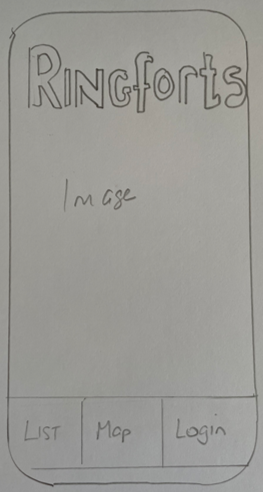 RINGforts
Image
LIST Map Login